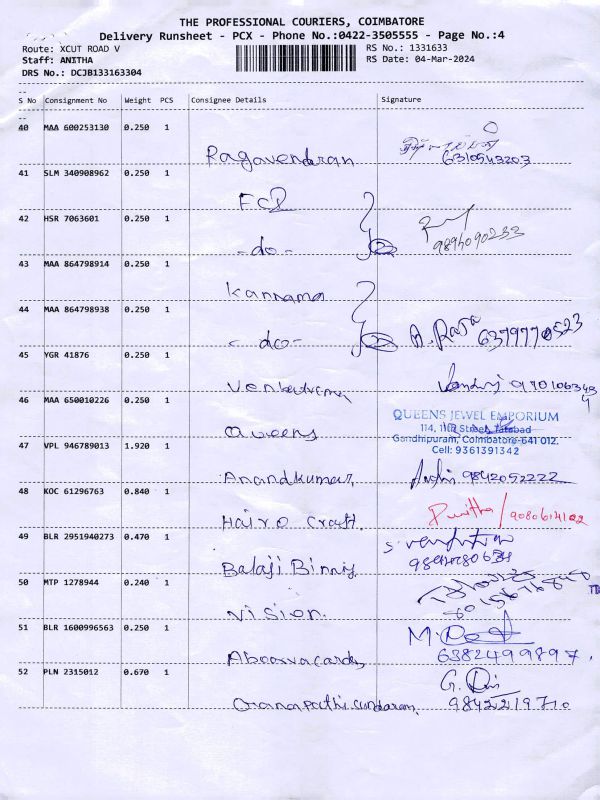 THE PROFESSIONAL COURIERS, COIMBATORE
Delivery Runsheet - PCX - Phone No.:0422-3505555 - Page No.:4
Route: XCUT ROAD V RS No.: 1331633
Staff: ANITHA RS Date: 04-Mar-2024
DRS No.: DCJB133163304
S No Consignment No Weight PCS Consignee Details Signature
40 MAA 600253130 0.250 1
Ragavendran 6310543203
41 SLM 340908962 0.250 1
42 HSR 7063601 0.250 1
-do- 9894090233
43 MAA 864798914 0.250 1
Kannama
44 MAA 864798938 0.250 1
-do- A. Raja 6379770523
45 YGR 41876 0.250 1
46 MAA 650010226 0.250 1
Queens
QUEENS JEWEL EMPORIUM
Gandhipuram, Coimbatore-641 012.
Cell: 9361391342
47 VPL 946789013 1.920 1
Anandkumar 9842052222
48 KOC 61296763 0.840 1
Hairo Craft. Punitha /
49 BLR 2951940273 0.470 1
Balaji Binny
50 MTP 1278944 0.240 1
Vision.
51 BLR 1600996563 0.250 1
Aboorvacards 6382499897.
52 PLN 2315012 0.670 1
Ganapathi Sundaram. 9842219710